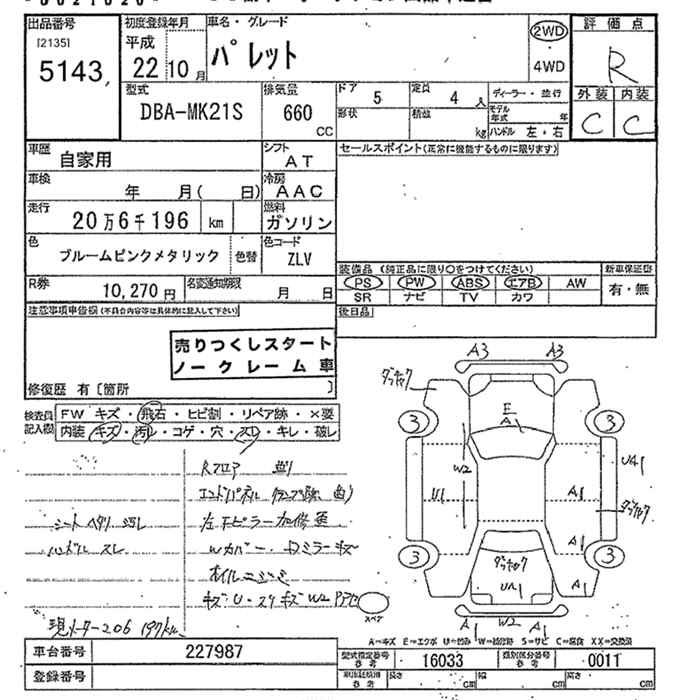 出品番号
[2135]
5143
初度登録年月
平成
22 10月
車名・グレード
パレット
2WD
・
4WD
評価点
R
外装 内装
C C
型式
DBA-MK21S
排気量
660
CC
ドア
5
定員
4人
形状
積載
kg
ディーラー・並行
モデル年式 年
ハンドル 左・右
車歴
自家用
シフト
AT
セールスポイント(正常に機能するものに限ります)
車検
年 月( 日)
冷房
AAC
走行
20万6千196 km
燃料
ガソリン
色
ブルームピンクメタリック
色替
色コード
ZLV
装備品 (純正品に限り○をつけてください)
新車保証書
PS PW ABS エアB AW
SR ナビ TV カワ
有・無
R券
10,270円
名変通知期限
月 日
注意事項申告欄(不具合内容等は具体的に記入して下さい)
後日品
売りつくしスタート
ノークレーム車
修復歴 有〔箇所 〕
検査員記入欄
FW キズ・飛石・ヒビ割・リペア跡・×要
内装・キズ・汚レ・コゲ・穴・スレ・キレ・破レ
Rフロア 曲り
シート ヘタリ 汚レ
ハンドル スレ
Wカバー・Dミラーキズ
オイルニジミ
現メーター206 197km
A3 A3
E
A1
3 3
W2
U1
UA1
A1
A1
3 3
UA1
A1
A1 W2 A1
スペア
A=キズ E=エクボ U=凹み W=補修跡 S=サビ C=腐食 XX=交換済
車台番号
227987
登録番号
型式指定番号
参考
16033
類別区分番号
参考
0011
長さ cm
幅 cm
高さ cm